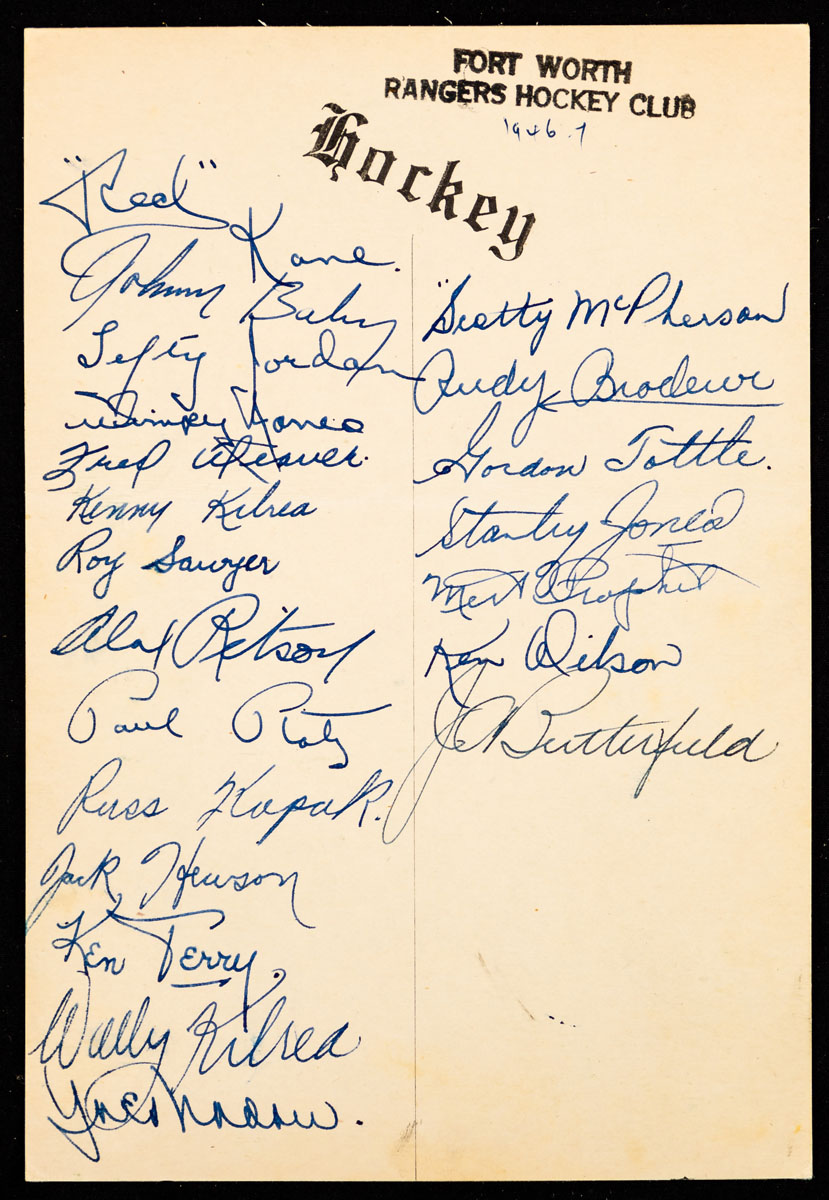 FORT WORTH
RANGERS HOCKEY CLUB
1946-7
Hockey
"Red" Kane.
Johnny Baby
Lefty Jordan
Jones
Fred Weaver.
Kenny Kilrea
Roy Sawyer
Alex Ritson
Paul Platz
Russ Kopak.
Jack Hewson
Ken Terry.
Wally Kilrea
"Scotty McPherson
Rudy Brodeur
Gordon Tottle.
Stanley Jones
Mert Prophet
Ken Wilson
J A Butterfield